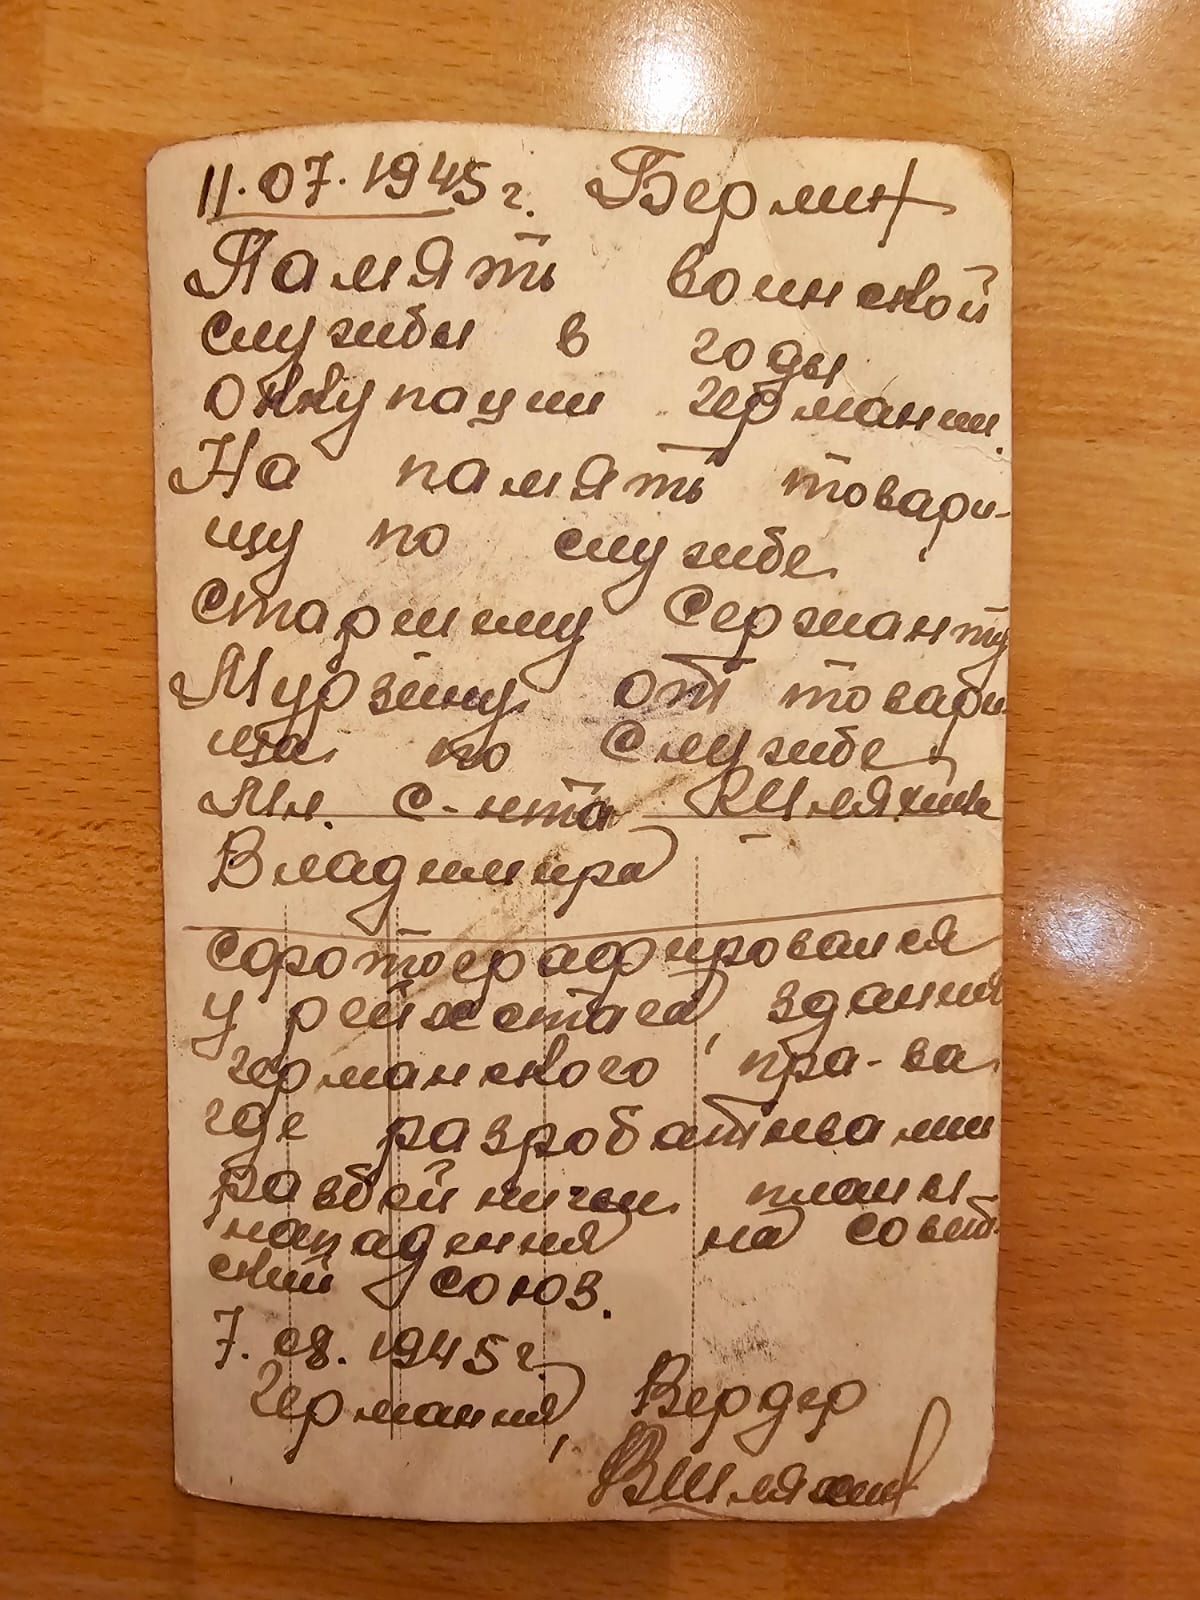 11.07.1945г. Берлин
Память воинской
службы в годы
оккупации Германии.
На память товари-
щу по службе
старшему Сержанту
Мурзину от товари
ща по Службе,
Мл. С-нта Шляхина
Владимира
сфотографировался
у рейхстага, здания
германского пра-ва
где разробатывали
разбойничьи планы
нападения на совет-
ский союз.
7.08.1945г.
Германия, Вердер
ВШляхин